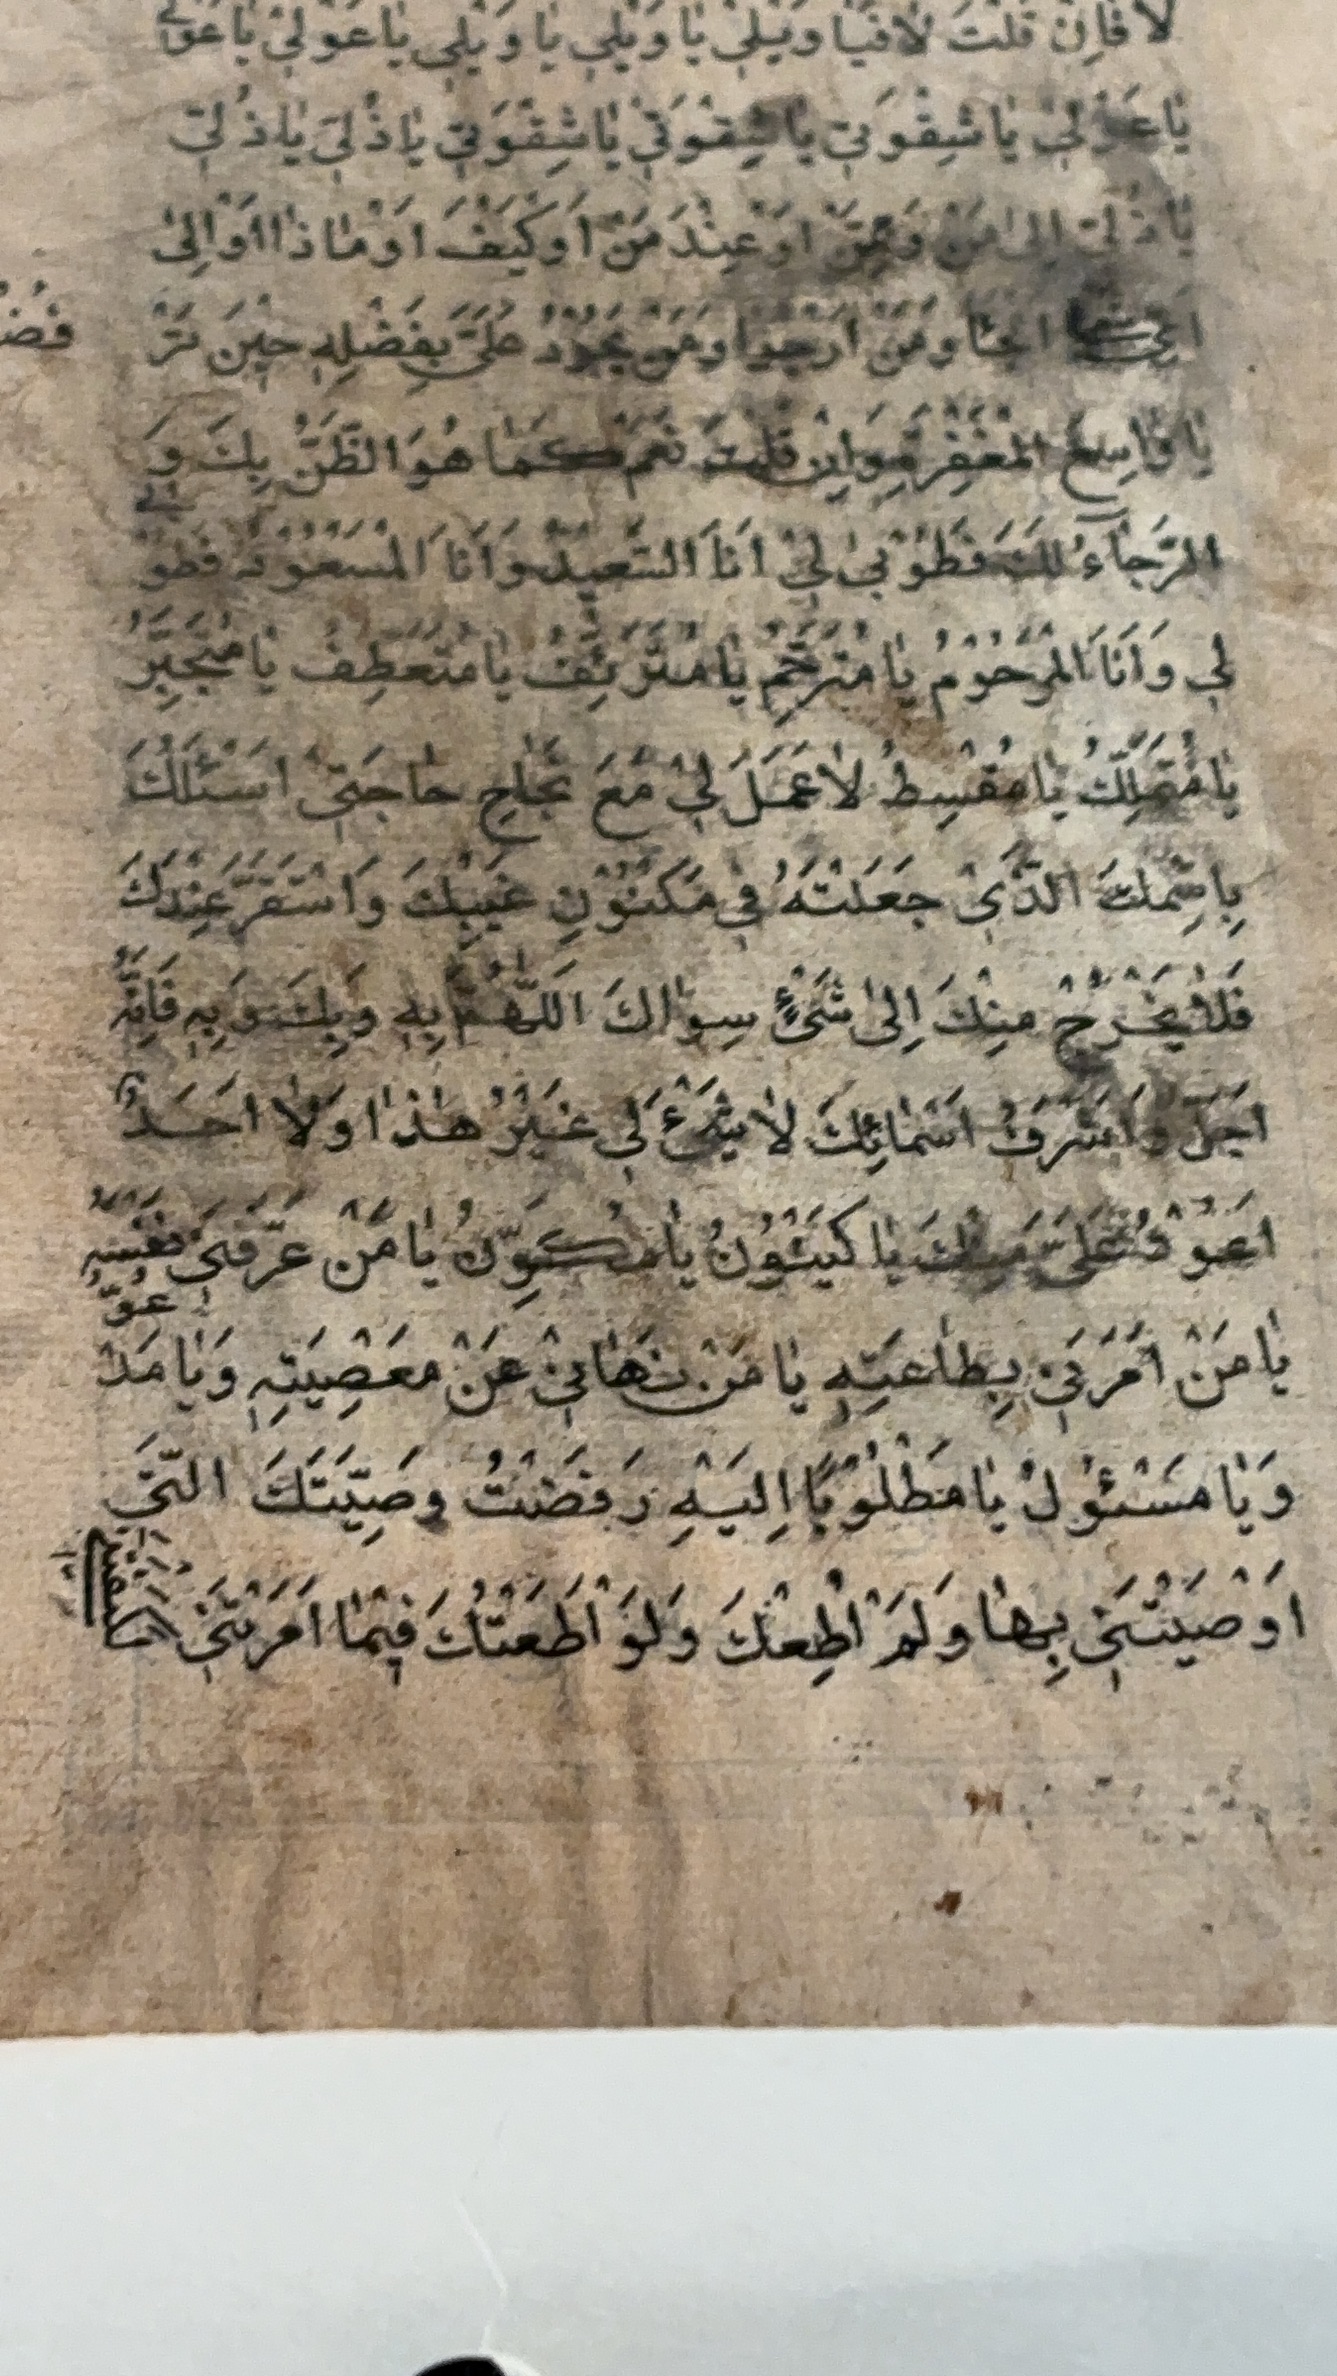 لَا فَإِنْ قُلْتَ لَا فَيَا وَيْلِي يَا وَيْلِي يَا وَيْلِي يَا عَوْلِي يَا عَوْلِي
يَا عَوْلِي يَا شِقْوَتِي يَا شِقْوَتِي يَا شِقْوَتِي يَا ذُلِّي يَا ذُلِّي
يَا ذُلِّي إِلَى مَنْ وَمِمَّنْ أَوْ عِنْدَ مَنْ أَوْ كَيْفَ أَوْ مَا ذَا أَوْ إِلَى
اَيِّ شَيْءٍ اَلْجَأُ وَمَنْ اَرْجُو وَمَنْ يَجُودُ عَلَيَّ بِفَضْلِهِ حِيْنَ تَرْ
فُضُ
يَا وَاسِعَ الْمَغْفِرَةِ وَاِنْ قُلْتَ نَعَمْ كَمَا هُوَ الظَّنُّ بِكَ وَ
الرَّجَاءُ لَكَ فَطُوْبَى لِيْ اَنَا السَّعِيْدُ وَاَنَا الْمَسْعُوْدُ فَطُوْ
بى
لِي وَاَنَا الْمَرْحُوْمُ يَا مُتَرَحِّمُ يَا مُتَرَئِّفُ يَا مُتَعَطِّفُ يَا مُتَجَبِّرُ
يَا مُتَمَلِّكُ يَا مُقْسِطُ لَا عَمَلَ لِيْ مَعَ نَجَاحِ حَاجَتِيْ اَسْئَلُكَ
بِاسْمِكَ الَّذِيْ جَعَلْتَهُ فِي مَكْنُوْنِ غَيْبِكَ وَاسْتَقَرَّ عِنْدَكَ
فَلَا يَخْرُجُ مِنْكَ اِلَى شَيْءٍ سِوَاكَ اَللّٰهُمَّ بِهِ وَبِكَ وَبِهِ فَاِنَّهُ
اَجَلُّ وَاَشْرَفُ اَسْمَائِكَ لَا شَيْءَ لِي غَيْرُ هٰذَا وَلَا اَحَدٌ
اَعْوَدُ عَلَيَّ مِنْكَ يَا كَيْنُوْنُ يَا مُكَوِّنُ يَا مَنْ عَرَّفَنِيْ نَفْسَهُ
يَا مَنْ اَمَرَنِيْ بِطَاعَتِهِ يَا مَنْ نَهَانِيْ عَنْ مَعْصِيَتِهِ وَيَا مَدْ
عُوُّ
وَيَا مَسْئُوْلُ يَا مَطْلُوْبًا اِلَيْهِ رَفَضْتُ وَصِيَّتَكَ الَّتِيْ
اَوْصَيْتَنِيْ بِهَا وَلَمْ اُطِعْكَ وَلَوْ اَطَعْتُكَ فِيْمَا اَمَرْتَنِيْ لَكَفَيْتَنِيْ